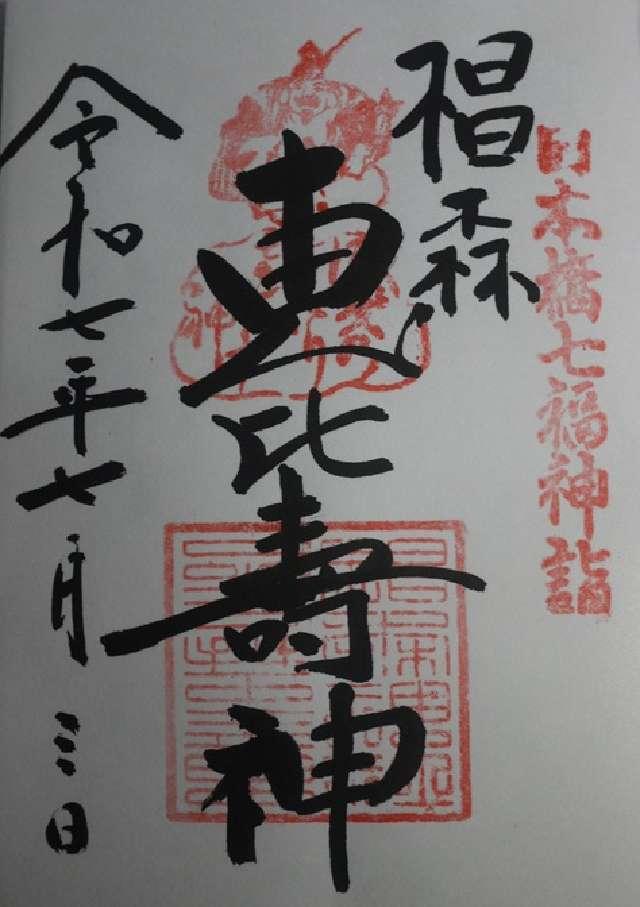 日本橋七福神詣
椙森
恵比壽神
令和七年七月三日